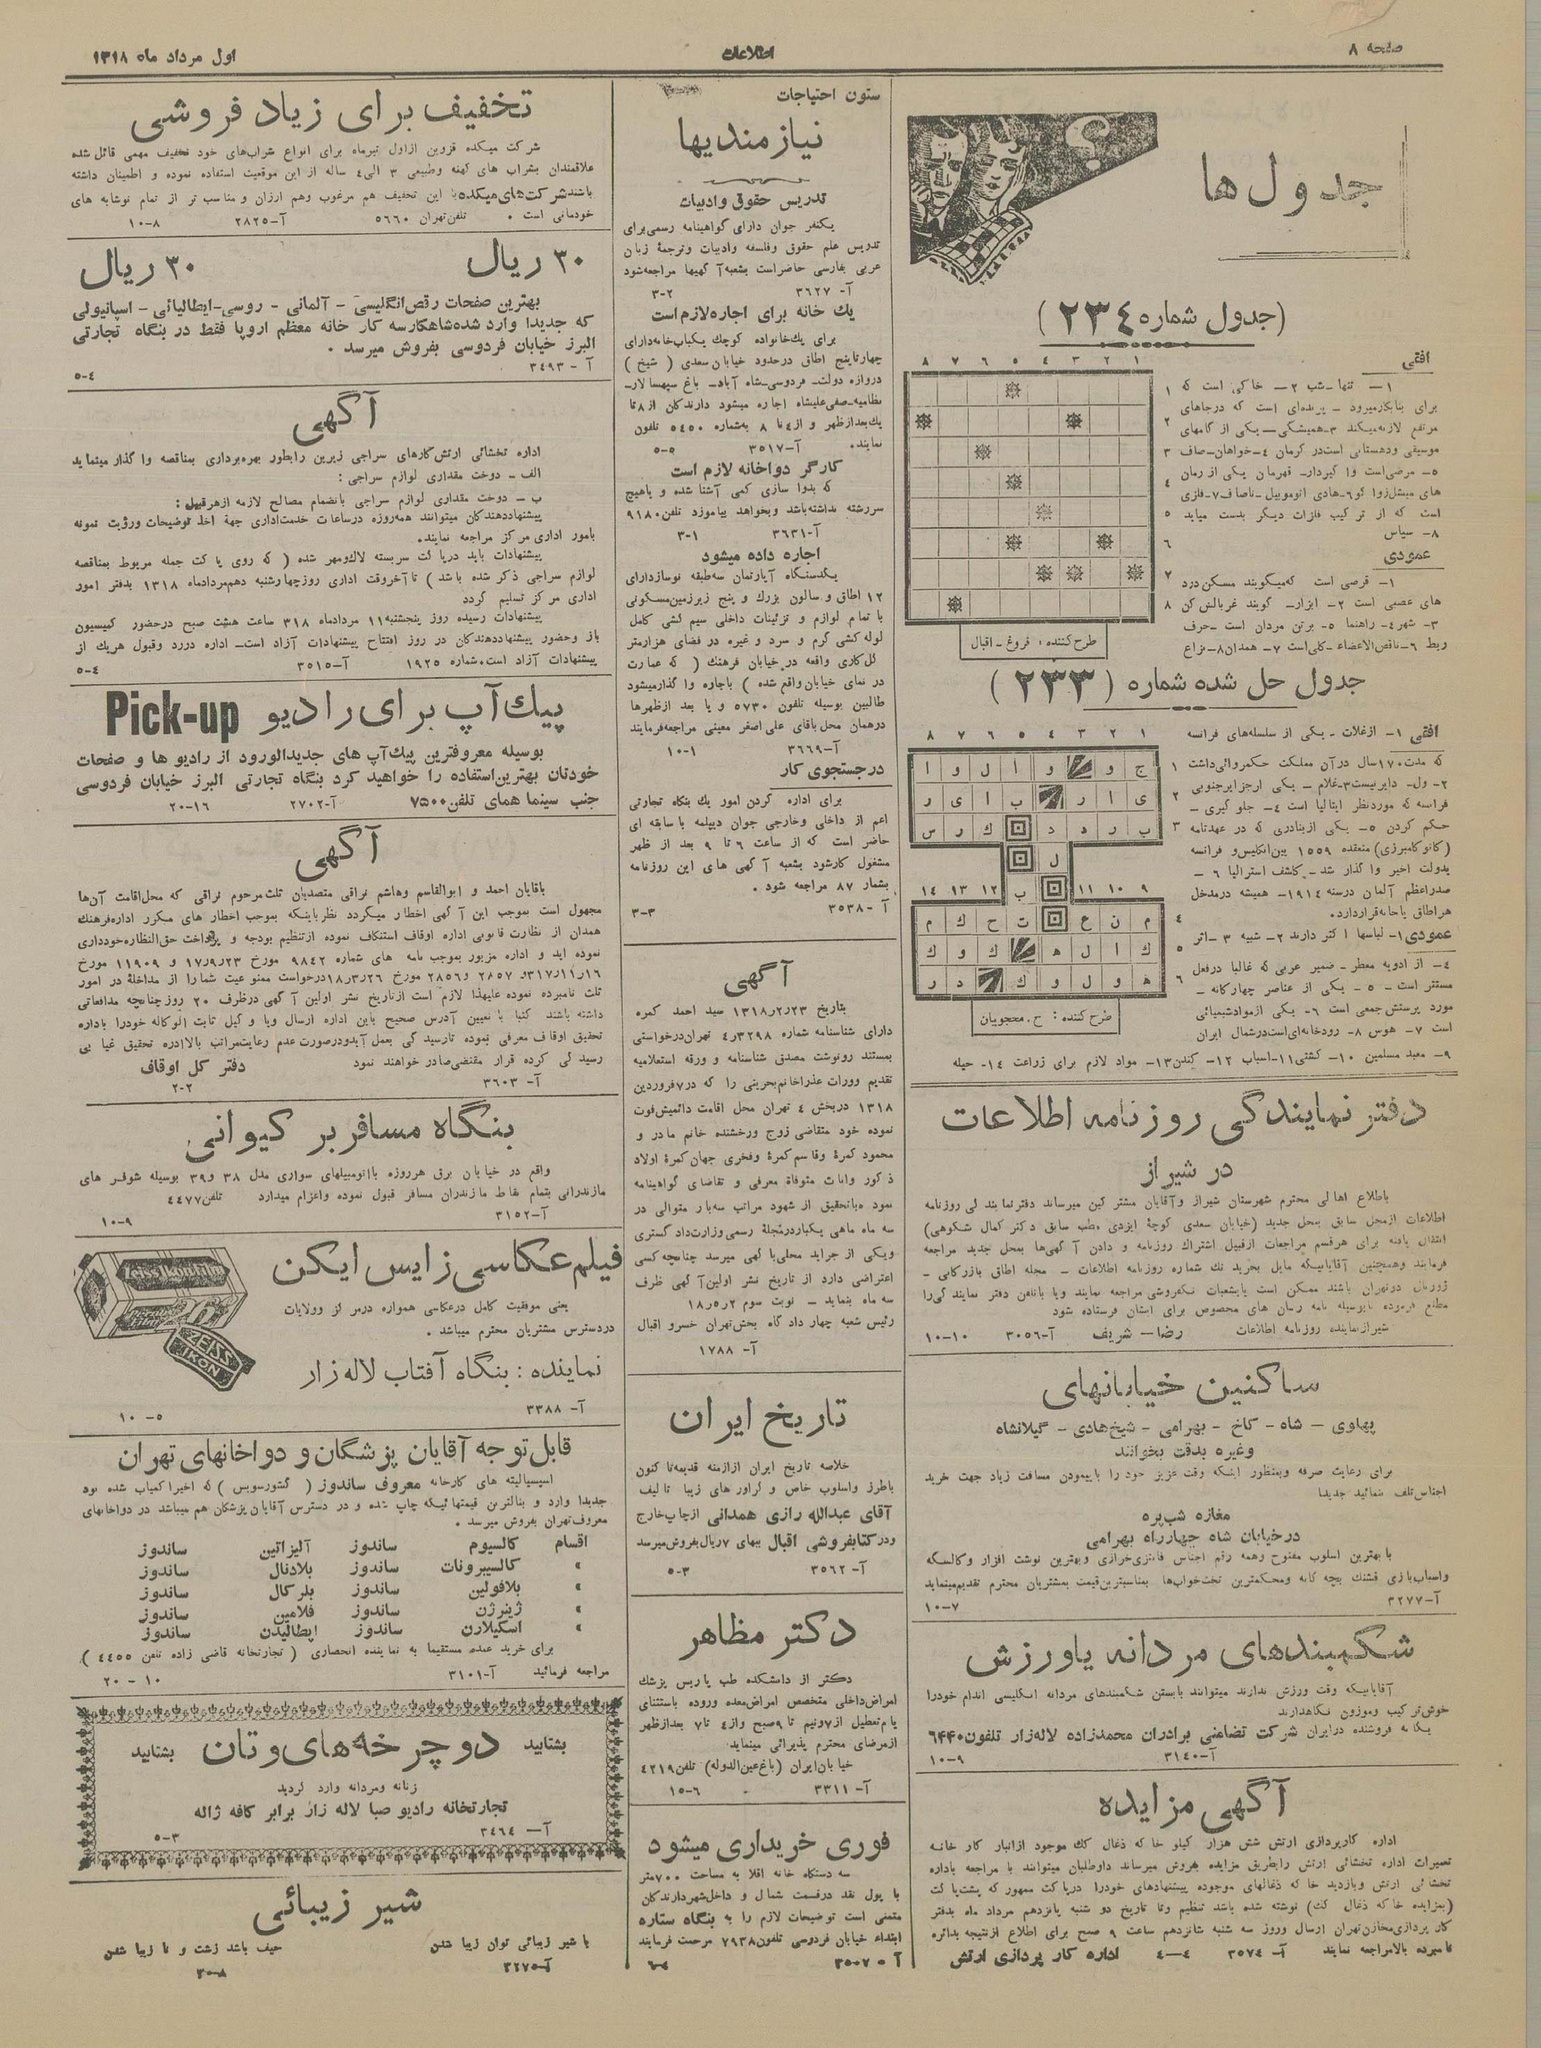 صفحه ۸
اطلاعات
اول مرداد ماه ۱۳۱۸
جدول ها
(جدول شماره ۲۳۴)
افقی
۱ ۲ ۳ ۴ ۵ ۶ ۷ ۸
۱- تنها - شب ۲- خاکی است که
برای بنا بکار میرود - پرنده‌ای است که درجاهای
مرتفع لانه میکند ۳- همیشگی - یکی از گامهای
موسیقی ودهستانی است در کرمان ۴- خواهان - صاف
۵- مرضی است وا گیردار - قهرمان یکی از رمان
های میشل زوا کو ۶- هادی اتوموبیل - ناصاف ۷- فلزی
است که از ترکیب فلزات دیگر بدست میاید
۸- سیاس
عمودی
۱- قرصی است که میگویند مسکن درد
های عصبی است ۲- ابزار - گویند غربالش کن
۳- شهر ۴- راهنما ۵- برتن مردان است - حرف
ربط ۶- ناقص الاعضاء - کلی است ۷- همدان ۸- نزاع
طرح کننده: فروغ - اقبال
جدول حل شده شماره (۲۳۳)
افقی ۱- ازغلات - یکی از سلسله‌های فرانسه
که مدت ۱۷۰ سال در آن مملکت حکمروائی داشت
۲- ول - دایر نیست ۳- غلام - یکی ازجزایر جنوبی
فرانسه که مورد نظر ایتالیا است ۴- جلو گیری -
حکم کردن ۵- یکی از بنادری که در عهدنامه
(کاتو کامبرزی) منعقده ۱۵۵۹ بین انگلیس و فرانسه
بدولت اخیر وا گذار شد - کاشف استرالیا ۶-
صدراعظم آلمان درسنه ۱۹۱۴- همیشه درمدخل
هر اطاق یا خانه قرار دارد.
عمودی ۱- لباسها اکثر دارند ۲- شبیه ۳- اثر
۴- از ادویه معطر - ضمیر عربی که غالبا درفعل
مستتر است - ۵- یکی از عناصر چهارگانه -
مورد پرستش جمعی است ۶- یکی ازمواد شیمیائی
است ۷- هوس ۸- رودخانه‌ای است درشمال ایران
۹- معبد مسلمین ۱۰- کشتی ۱۱- اسباب ۱۲- کندن ۱۳- مواد لازم برای زراعت ۱۴- حیله
۱ ۲ ۳ ۴ ۵ ۶ ۷ ۸
ج و و ا ل و ا
ی ا ر ب ا ی ر
ب ر د د ک ر س
ل
۹ ۱۰ ۱۱ ب ۱۲ ۱۳ ۱۴
م ن ع ت ح ک م
ک ا ل ه ک و ک
ه و ل و ک د ر
طرح کننده: ح. محجوبیان
دفتر نمایندگی روزنامه اطلاعات
در شیراز
باطلاع اهالی محترم شهرستان شیراز وآقایان مشتر کین میرساند دفتر نمایند گی روزنامه
اطلاعات ازمحل سابق بمحل جدید (خیابان سعدی کوچهٔ ایزدی مطب سابق دکتر کمال شکوهی)
انتقال یافته برای هرقسم مراجعات ازقبیل اشتراک روزنامه و دادن آ گهی‌ها بمحل جدید مراجعه
فرمایند وهمچنین آقایانیکه مایل بخرید تک شماره روزنامه اطلاعات - مجله اطاق بازرگانی -
ژورنال دوتهران باشند ممکن است بایشعبات تکفروشی مراجعه نمایند ویا باتلفن دفتر نمایند گی را
مطلع فرموده تابوسیله نامه رسان های مخصوص برای ایشان فرستاده شود
شیراز نماینده روزنامه اطلاعات رضا - شریف آ-۳۰۵۶ ۱۰-۱۰
ساکنین خیابانهای
پهلوی - شاه - کاخ - بهرامی - شیخ هادی - گیلانشاه
وغیره بدقت بخوانند
برای رعایت صرفه وبمنظور اینکه وقت عزیز خود را باپیمودن مسافت زیاد جهت خرید
اجناس تلف ننمائید جدیدا
مغازه شب‌پره
درخیابان شاه چهارراه بهرامی
با بهترین اسلوب مفتوح وهمه رقم اجناس فانتزی خرازی وبهترین نوشت افزار و کالسگه
واسباب بازی قشنگ بچه گانه ومحکمترین تختخواب‌ها بمناسبترین قیمت بمشتریان محترم تقدیم مینماید
آ-۳۲۷۷ ۱۰-۷
شکمبندهای مردانه یاورزش
آقایانیکه وقت ورزش ندارند میتوانند بابستن شکمبندهای مردانه انگلیسی اندام خودرا
خوش ترکیب وموزون نگاهدارند
یگانه فروشنده درایران شرکت تضامنی برادران محمدزاده لاله زار تلفون ۶۴۴۰
آ-۳۱۴۰ ۱۰-۹
آگهی مزایده
اداره کارپردازی ارتش شش هزار کیلو خا که ذغال کک موجود ازانبار کار خانه
تعمیرات اداره تخشائی ارتش رابطریق مزایده بفروش میرساند داوطلبان میتوانند با مراجعه باداره
تخشائی ارتش وبازدید خا که ذغالهای موجوده پیشنهادهای خودرا درپاکت ممهور که پشت پا کت
(بمزایده خا که ذغال کک) نوشته شده باشد تنظیم وتا تاریخ دو شنبه پانزدهم مرداد ماه بدفتر
کار پردازی مخازن تهران ارسال وروز سه شنبه شانزدهم ساعت ۹ صبح برای اطلاع ازنتیجه بدائره
نامبرده بالا مراجعه نمایند آ- ۳۵۷۴ ۴-۴ اداره کار پردازی ارتش
ستون احتیاجات
نیازمندیها
تدریس حقوق وادبیات
یکنفر جوان دارای گواهینامه رسمی برای
تدریس علم حقوق وفلسفه وادبیات وترجمهٔ زبان
عربی بفارسی حاضر است بشعبه آ گهیها مراجعه شود
آ- ۳۶۲۷ ۳-۲
یک خانه برای اجاره لازم است
برای یک خانواده کوچک یکباب خانه دارای
چهار تاپنج اطاق درحدود خیابان سعدی (شیخ)
دروازه دولت - فردوسی - شاه آباد - باغ سپهسالار -
نظامیه - صفی علیشاه اجاره میشود دارندگان از ۸ تا
یک بعدازظهر و از ۴ تا ۸ به شماره ۵۴۵۰ تلفون
نمایند. آ-۳۵۱۷ ۵-۵
کارگر دواخانه لازم است
که بدوا سازی کمی آشنا شده و یا هیچ
سررشته نداشته باشد وبخواهد بیاموزد تلفن ۹۱۸۰
آ-۳۶۳۱ ۳-۱
اجاره داده میشود
یکدستگاه آپارتمان سه طبقه نوساز دارای
۱۲ اطاق و سالون بزرک و پنج زیرزمین مسکونی
با تمام لوازم و تزئینات داخلی سیم کشی کامل
لوله کشی گرم و سرد و غیره در فضای هزارمتر
گل کاری واقعه در خیابان فرهنک (که عمارت
در نمای خیابان واقع شده) باجاره وا گذار میشود
طالبین بوسیله تلفون ۵۷۳۰ و یا بعد ازظهرها
درهمان محل باقای علی اصغر معینی مراجعه فرمایند
آ-۳۶۶۹ ۱۰-۱
درجستجوی کار
برای اداره کردن امور یک بنگاه تجارتی
اعم از داخلی وخارجی جوان دیپلمه با سابقه ای
حاضر است که از ساعت ۶ تا ۹ بعد از ظهر
مشغول کارشود بشعبه آ گهی های این روزنامه
بشمار ۸۷ مراجعه شود.
آ-۳۵۳۸ ۳-۳
آگهی
بتاریخ ۲۳ر۲ر۱۳۱۸ سید احمد کمره
دارای شناسنامه شماره ۳۲۹۸ر۴ تهران درخواستی
بمستند رونوشت مصدق شناسنامه و ورقه استعلامیه
تقدیم وورات عذراخانم بحرینی را که در ۷ فروردین
۱۳۱۸ دربخش ۴ تهران محل اقامت دائمیش فوت
نموده خود متقاضی زوج ورخشنده خانم مادر و
محمود کمرهٔ وقاسم کمرهٔ وفخری جهان کمرهٔ اولاد
ذکور واناث متوفاة معرفی و تقاضای گواهینامه
نمود ه باتحقیق از شهود مراتب سه بار متوالی در
سه ماه ماهی یکبار درمجلهٔ رسمی وزارت داد گستری
ویکی از جراید محلی با گهی میرسد چنانچه کسی
اعتراضی دارد از تاریخ نشر اولین آ گهی ظرف
سه ماه بنماید - نوبت سوم ۲ر۵ر۱۸
رئیس شعبه چهار داد گاه بخش تهران خسرو اقبال
آ- ۱۷۸۸
تاریخ ایران
خلاصه تاریخ ایران ازازمنه قدیمه تا کنون
باطرز واسلوب خاص و گراور های زیبا تا لیف
آقای عبدالله رازی همدانی ازچاپ خارج
ودر کتابفروشی اقبال ببهای ۷ ریال بفروش میرسد
آ-۳۵۶۲ ۵-۳
دکتر مظاهر
دکتر از دانشکده طب پاریس پزشک
امراض داخلی متخصص امراض معده وروده باستثنای
ایام تعطیل از ۷ونیم تا ۹ صبح واز ۴ تا ۷ بعدازظهر
ازمرضای محترم پذیرائی مینماید
خیابان ایران (باغ عین الدوله) تلفن ۴۲۱۹
آ-۳۳۱۱ ۱۵-۶
فوری خریداری میشود
سه دستگاه خانه اقلا به مساحت ۷۰۰ متر
با پول نقد درقسمت شمال و داخل شهر دارندگان
متمنی است توضیحات لازم را به بنگاه ستاره
ابتداء خیابان فردوسی تلفون ۷۹۳۸ مرحمت فرمایند
آ-۳۵۰۷ ۶-۴
تخفیف برای زیاد فروشی
شرکت میکده قزوین ازاول تیرماه برای انواع شرابهای خود تخفیف مهمی قائل شده
علاقمندان بشراب های کهنه وطبیعی ۳ الی ۴ ساله از این موقعیت استفاده نموده و اطمینان داشته
باشند شرکت‌های میکده با این تخفیف هم مرغوب وهم ارزان و مناسب تر از تمام نوشابه های
خودمانی است. تلفن تهران ۵۶۶۰ آ-۲۸۲۵ ۱۰-۸
۳۰ ریال ۳۰ ریال
بهترین صفحات رقص انگلیسی - آلمانی - روسی - ایطالیائی - اسپانیولی
که جدیدا وارد شده شاهکار سه کار خانه معظم اروپا فقط در بنگاه تجارتی
البرز خیابان فردوسی بفروش میرسد.
آ-۳۴۹۳ ۵-۴
آگهی
اداره تخشائی ارتش کارهای سراجی زیرین رابطور بهره برداری بمناقصه وا گذار مینماید
الف - دوخت مقداری لوازم سراجی:
ب - دوخت مقداری لوازم سراجی بانضمام مصالح لازمه ازهر قبیل:
پیشنهاددهندگان میتوانند همه روزه درساعات خدمت اداری جهة اخذ توضیحات ورؤیت نمونه
بامور اداری مرکز مراجعه نمایند.
پیشنهادات باید درپا کت سربسته لاک ومهر شده (که روی پا کت جمله مربوط بمناقصه
لوازم سراجی ذکر شده باشد) تا آخروقت اداری روزچهارشنبه دهم مردادماه ۱۳۱۸ بدفتر امور
اداری مرکز تسلیم گردد
پیشنهادات رسیده روز پنجشنبه ۱۱ مردادماه ۳۱۸ ساعت هشت صبح درحضور کمیسیون
باز وحضور پیشنهاددهندگان در روز افتتاح پیشنهادات آزاد است - اداره دررد وقبول هریک از
پیشنهادات آزاد است. شماره ۱۹۲۵ آ-۳۵۱۵ ۵-۴
پیک آپ برای رادیو Pick-up
بوسیله معروفترین پیک آپ های جدیدالورود از رادیو ها و صفحات
خودتان بهترین استفاده را خواهید کرد بنگاه تجارتی البرز خیابان فردوسی
جنب سینما همای تلفن ۷۵۰۰ آ-۲۷۰۲ ۲۰-۱۶
آگهی
باقایان احمد و ابوالقاسم وهاشم نراقی متصدیان ثلث مرحوم نراقی که محل اقامت آن‌ها
مجهول است بموجب این آ گهی اخطار میگردد نظر باینکه بموجب اخطار های مکرر اداره فرهنک
همدان از نظارت قانونی اداره اوقاف استنکاف نموده ازتنظیم بودجه و پرداخت حق النظاره خودداری
نموده اید و اداره مزبور بموجب نامه های شماره ۹۸۴۲ مورخ ۲۳ر۹ر۱۷ و ۱۱۹۰۹ مورخ
۱۶ر۱۱ر۳۱۷ و ۲۸۵۷ و ۲۸۵۶ مورخ ۲۶ر۳ر۱۸ درخواست ممنوعیت شما را از مداخلهٔ در امور
ثلث نامبرده نموده علیهذا لازم است ازتاریخ نشر اولین آ گهی درظرف ۲۰ روز چنانچه مدافعاتی
داشته باشند کتبا با تعیین آدرس صحیح باین اداره ارسال ویا وکیل ثابت الوکاله خودرا باداره
تحقیق اوقاف معرفی نموده تارسید گی بعمل آید ودرصورت عدم رعایت مراتب بالا اداره تحقیق غیا بی
رسید گی کرده قرار مقتضی صادر خواهند نمود دفتر کل اوقاف
آ-۳۶۰۳ ۲-۲
بنگاه مسافربر کیوانی
واقع در خیابان برق هرروزه با اتومبیلهای سواری مدل ۳۸ و ۳۹ بوسیله شوفر های
مازندرانی بتمام نقاط مازندران مسافر قبول نموده واعزام میدارد تلفن ۴۴۷۷
آ-۳۱۵۲ ۱۰-۹
فیلم عکاسی زایس ایکن
یعنی موفقیت کامل درعکاسی همواره درمر کز وولایات
دردسترس مشتریان محترم میباشد.
نماینده: بنگاه آفتاب لاله زار
آ-۳۳۸۸ ۱۰-۵
ZEISS
IKON
قابل توجه آقایان پزشگان و دواخانهای تهران
اسپسیالیته های کارخانه معروف ساندوز (کشور سویس) که اخیرا کمیاب شده بود
جدیدا وارد و بنازلترین قیمتهائیکه چاپ شده و در دسترس آقایان پزشکان هم میباشد در دواخانهای
معروف تهران بفروش میرسد.
اقسام کالسیوم ساندوز آلیزاتین ساندوز
» کالسیبرونات ساندوز بلادنال ساندوز
» بلافولین ساندوز بلرکال ساندوز
» ژینرژن ساندوز فلامین ساندوز
» اسکیلارن ساندوز اپطالیدن ساندوز
برای خرید عمده مستقیما به نماینده انحصاری (تجارتخانه قاضی زاده تلفن ۴۴۵۵)
مراجعه فرمائید آ-۳۱۰۱ ۲۰-۱۰
بشتابید دوچرخه‌های وتان بشتابید
زنانه ومردانه وارد گردید
تجارتخانه رادیو صبا لاله زار برابر کافه ژاله
آ-۳۴۶۴ ۵-۳
شیر زیبائی
با شیر زیبائی توان زیبا شدن حیف باشد زشت و نا زیبا شدن
آ-۳۲۷۵ ۳۰-۸